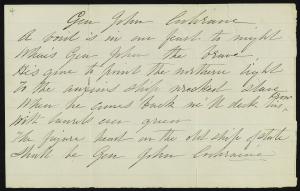 Gen John Cochrane
A void is in our feast to night
Where's Gen John the brave
He's gone to point the northern light
To the anxious ship wrecked slave
When he comes back we'll deck his brow
With laurels ever green
The figure head on the old ship of state
Shall be Gen John Cochrane